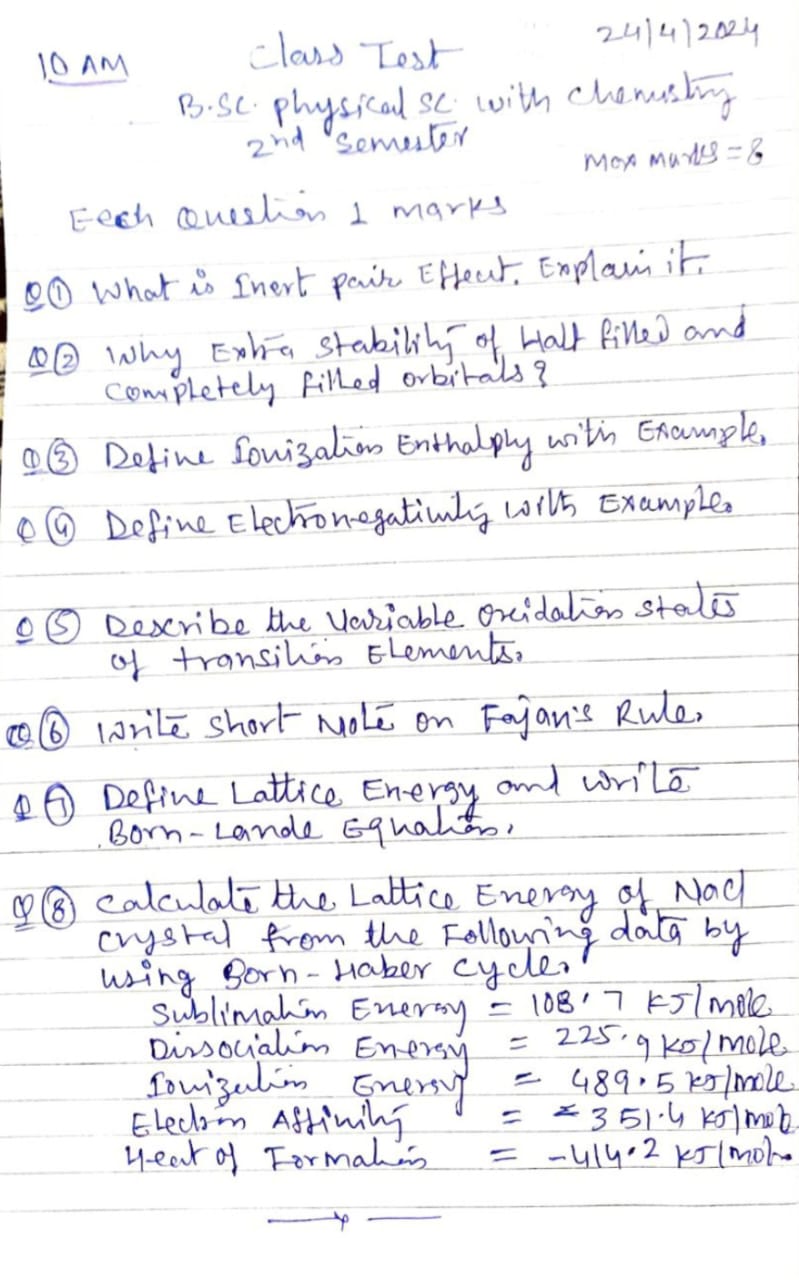 24/4/2024
10 AM Class Test
B.SC. physical SC. with chemistry
2nd Semester
Max marks = 8
Each Question 1 marks
Q① What is Inert pair Effect. Explain it.
Q② Why Extra stability of Half filled and
completely filled orbitals?
Q③ Define Ionization Enthalphy with Example.
Q④ Define Electronegativity with Example.
Q⑤ Describe the Variable Oxidation states
of transition Elements.
Q⑥ Write short Note on Fajan's Rule.
Q⑦ Define Lattice Energy and write
Born-Lande Equation.
Q⑧ Calculate the Lattice Energy of NaCl
crystal from the Following data by
using Born-Haber cycle.
Sublimation Energy = 108.7 KJ/mole
Dissociation Energy = 225.9 KJ/mole
Ionization Energy = 489.5 KJ/mole
Electron Affinity = -351.4 KJ/mole
Heat of Formation = -414.2 KJ/mole